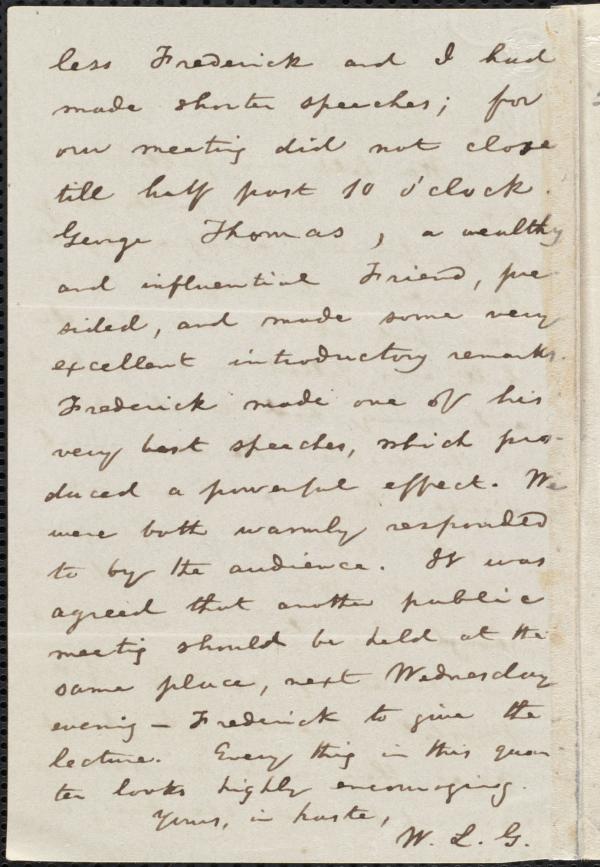 less Frederick and I had
made shorter speeches; for
our meeting did not close
till half past 10 o'clock.
George Thomas, a wealthy
and influential Friend, pre-
sided, and made some very
excellent introductory remarks.
Frederick made one of his
very best speeches, which pro-
duced a powerful effect. We
were both warmly responded
to by the audience. It was
agreed that another public
meeting should be held at the
same place, next Wednesday
evening — Frederick to give the
lecture. Every thing in this quar-
ter looks highly encouraging.
Yours, in haste,
W. L. G.